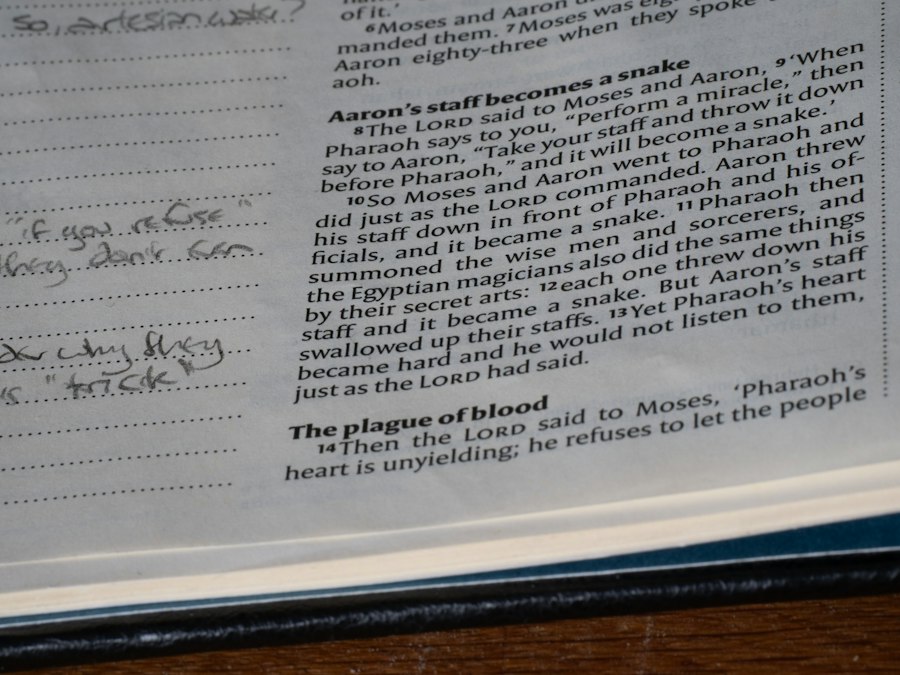 So, artesian water?
"if you refuse"
they don't even
why they
"trick"
of it.'
6Moses and Aaron
manded them. 7Moses was
Aaron eighty-three when they spoke
aoh.
Aaron's staff becomes a snake
8The LORD said to Moses and Aaron, 9'When
Pharaoh says to you, "Perform a miracle," then
say to Aaron, "Take your staff and throw it down
before Pharaoh," and it will become a snake.'
10So Moses and Aaron went to Pharaoh and
did just as the LORD commanded. Aaron threw
his staff down in front of Pharaoh and his of-
ficials, and it became a snake. 11Pharaoh then
summoned the wise men and sorcerers, and
the Egyptian magicians also did the same things
by their secret arts: 12each one threw down his
staff and it became a snake. But Aaron's staff
swallowed up their staffs. 13Yet Pharaoh's heart
became hard and he would not listen to them,
just as the LORD had said.
The plague of blood
14Then the LORD said to Moses, 'Pharaoh's
heart is unyielding; he refuses to let the people